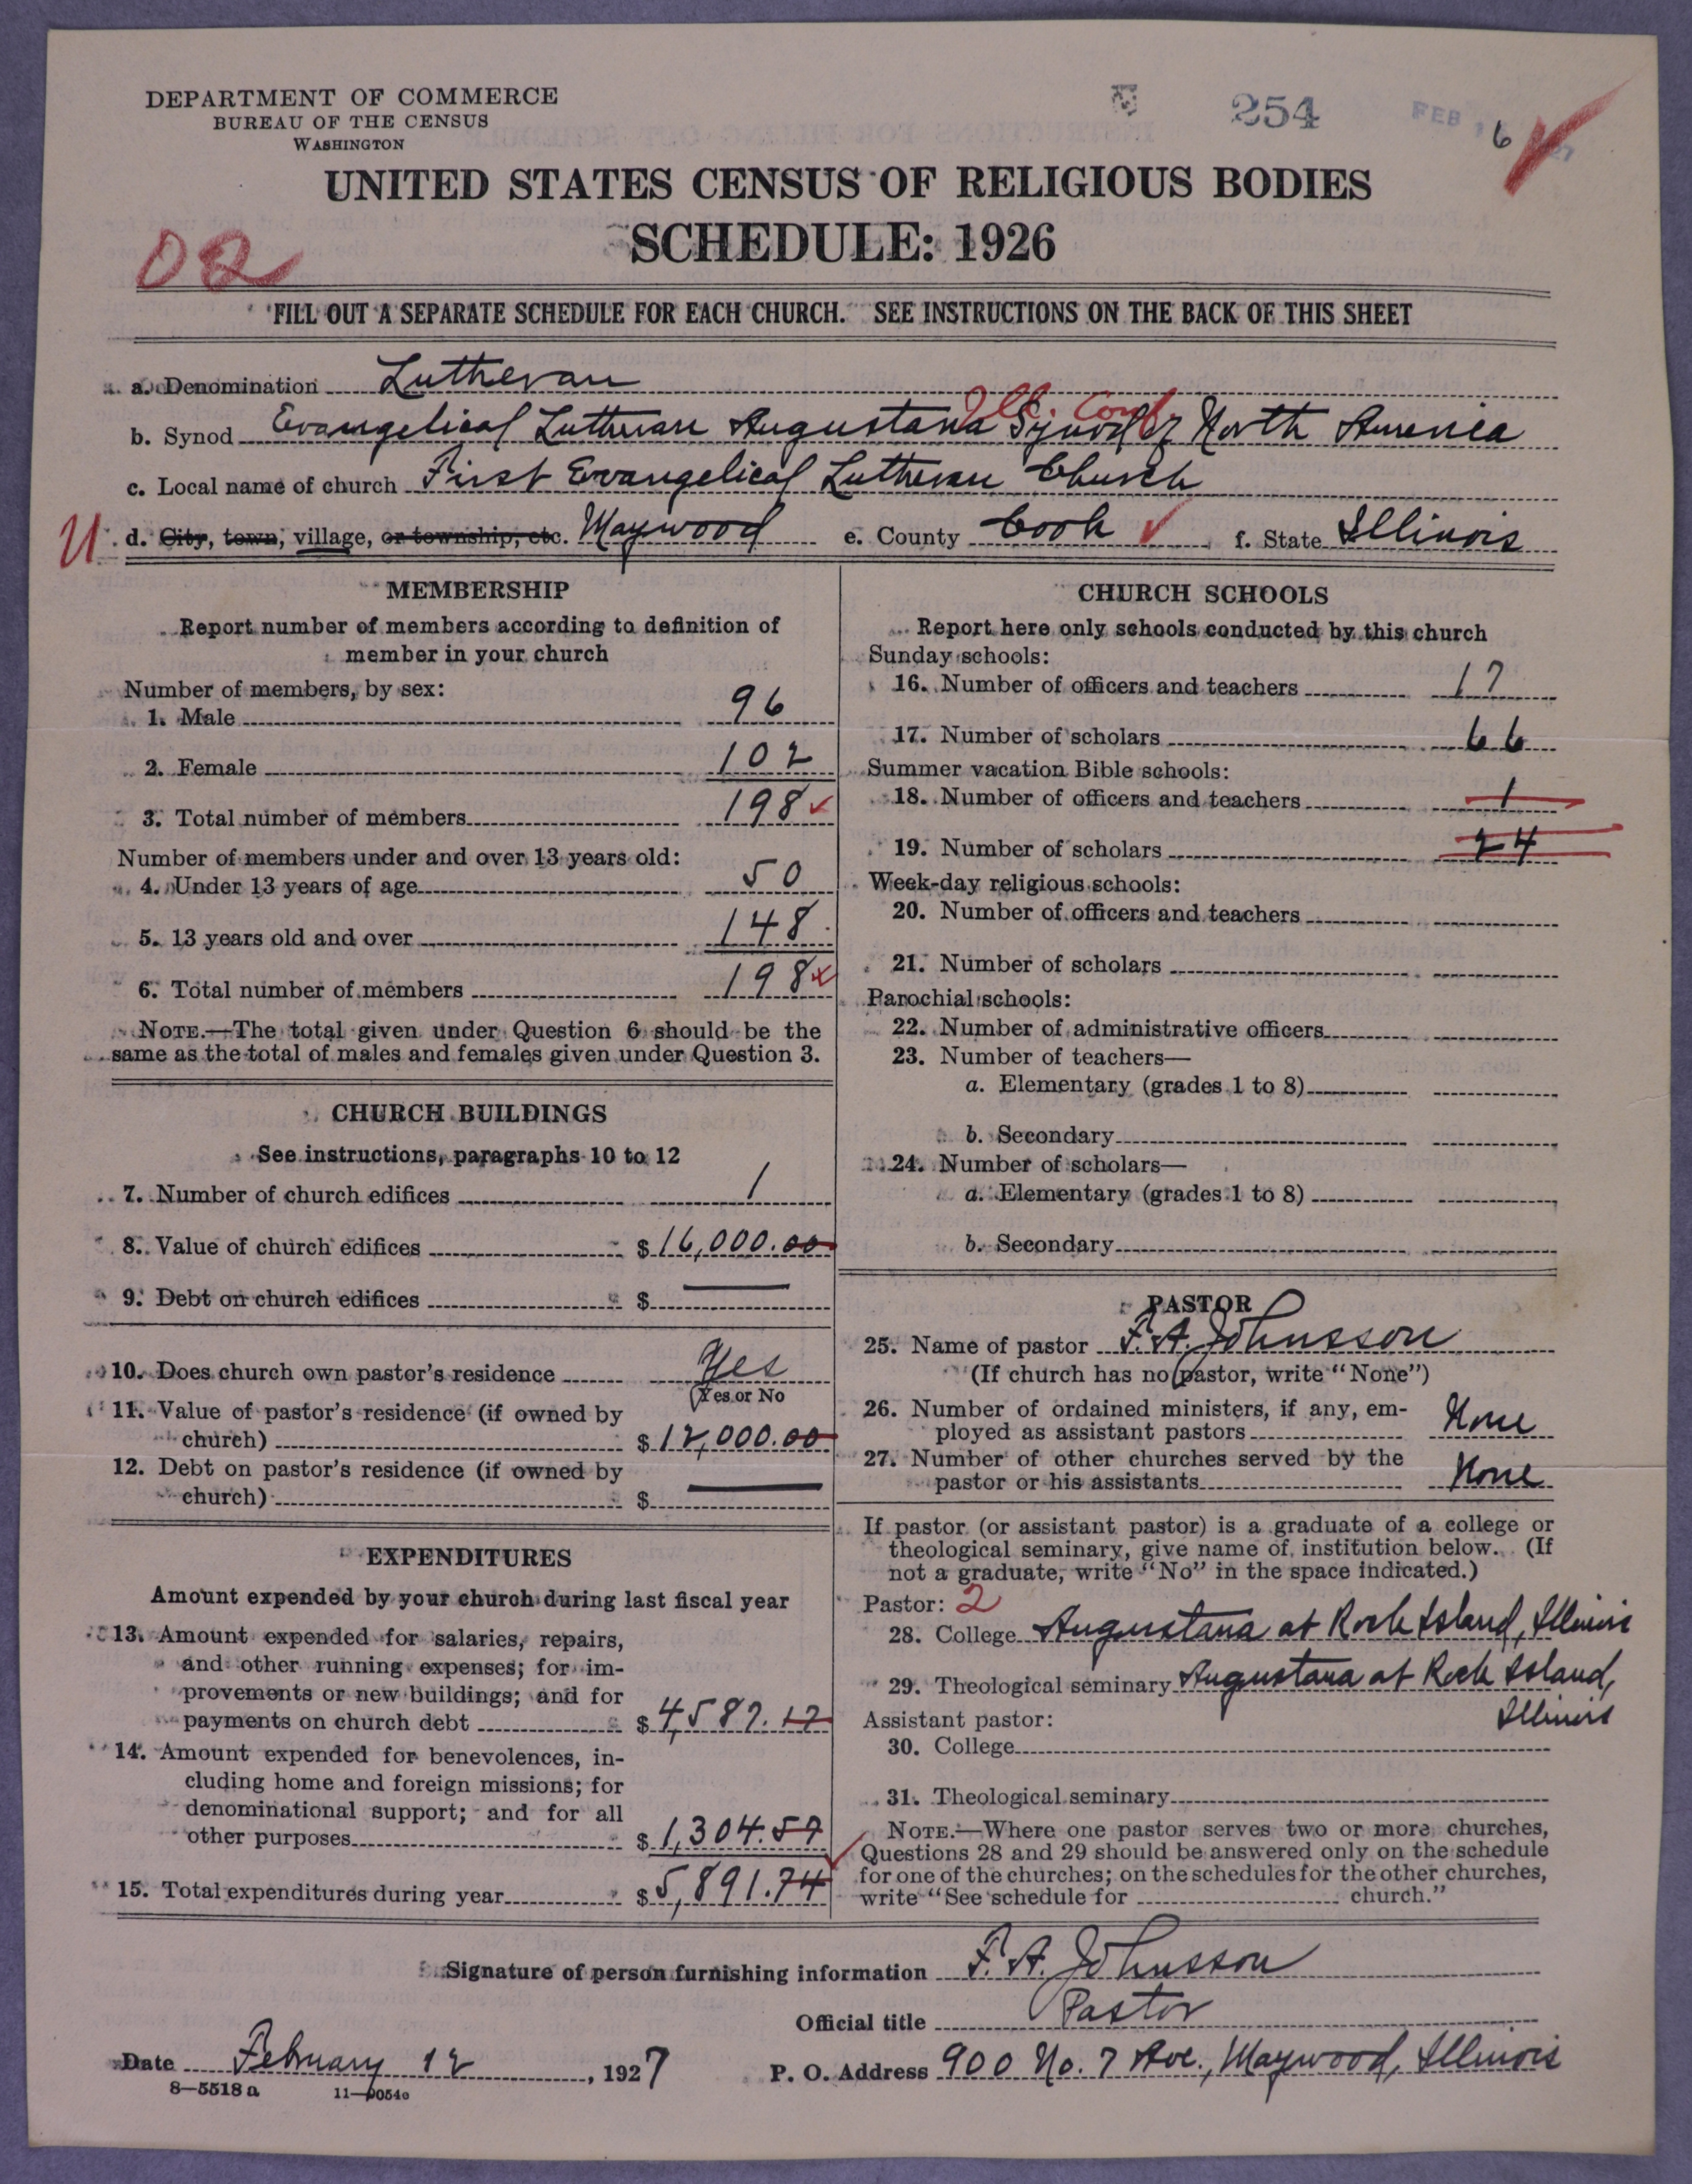 DEPARTMENT OF COMMERCE
BUREAU OF THE CENSUS
WASHINGTON
254
FEB 16
UNITED STATES CENSUS OF RELIGIOUS BODIES
SCHEDULE: 1926
02
FILL OUT A SEPARATE SCHEDULE FOR EACH CHURCH. SEE INSTRUCTIONS ON THE BACK OF THIS SHEET
a. Denomination Lutheran
Ill. Conf.
b. Synod Evangelical Lutheran Augustana Synod of North America
c. Local name of church First Evangelical Lutheran Church
U d. City, town, village, or township, etc. Maywood e. County Cook f. State Illinois
MEMBERSHIP
Report number of members according to definition of
member in your church
Number of members, by sex:
1. Male 96
2. Female 102
3. Total number of members 198
Number of members under and over 13 years old:
4. Under 13 years of age 50
5. 13 years old and over 148
6. Total number of members 198
NOTE.—The total given under Question 6 should be the
same as the total of males and females given under Question 3.
CHURCH BUILDINGS
See instructions, paragraphs 10 to 12
7. Number of church edifices 1
8. Value of church edifices $16,000.00
9. Debt on church edifices $ —
10. Does church own pastor's residence Yes
(Yes or No
11. Value of pastor's residence (if owned by
church) $12,000.00
12. Debt on pastor's residence (if owned by
church) $ —
EXPENDITURES
Amount expended by your church during last fiscal year
13. Amount expended for salaries, repairs,
and other running expenses; for im-
provements or new buildings; and for
payments on church debt $4,587.17
14. Amount expended for benevolences, in-
cluding home and foreign missions; for
denominational support; and for all
other purposes $1,304.57
15. Total expenditures during year $5,891.74
CHURCH SCHOOLS
Report here only schools conducted by this church
Sunday schools:
16. Number of officers and teachers 17
17. Number of scholars 66
Summer vacation Bible schools:
18. Number of officers and teachers 1
19. Number of scholars 24
Week-day religious schools:
20. Number of officers and teachers
21. Number of scholars
Parochial schools:
22. Number of administrative officers
23. Number of teachers—
a. Elementary (grades 1 to 8)
b. Secondary
24. Number of scholars—
a. Elementary (grades 1 to 8)
b. Secondary
PASTOR
25. Name of pastor F. A. Johnsson
(If church has no pastor, write "None")
26. Number of ordained ministers, if any, em-
ployed as assistant pastors None
27. Number of other churches served by the
pastor or his assistants None
If pastor (or assistant pastor) is a graduate of a college or
theological seminary, give name of institution below. (If
not a graduate, write "No" in the space indicated.)
Pastor: 2
28. College Augustana at Rock Island, Illinois
29. Theological seminary Augustana at Rock Island,
Illinois
Assistant pastor:
30. College
31. Theological seminary
NOTE.—Where one pastor serves two or more churches,
Questions 28 and 29 should be answered only on the schedule
for one of the churches; on the schedules for the other churches,
write "See schedule for church."
Signature of person furnishing information F. A. Johnsson
Official title Pastor
Date February 12, 1927
P. O. Address 900 No. 7 Ave., Maywood, Illinois
8—5518 a 11—9054c